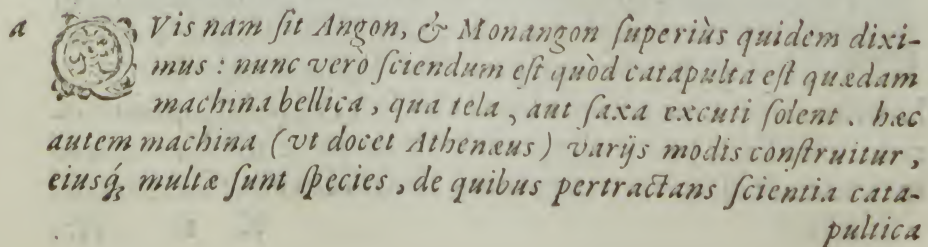 a QVis nam ſit Angon, & Monangon ſuperiùs quidem dixi-
mus : nunc vero ſciendum eſt quòd catapulta eſt quædam
machina bellica, qua tela, aut ſaxa excuti ſolent. hæc
autem machina (vt docet Athenæus) varijs modis conſtruitur,
eiusq́; multæ ſunt ſpecies, de quibus pertractans ſcientia cata-
pultica